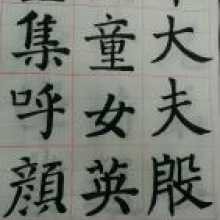 大夫殷
童女英
集呼顔